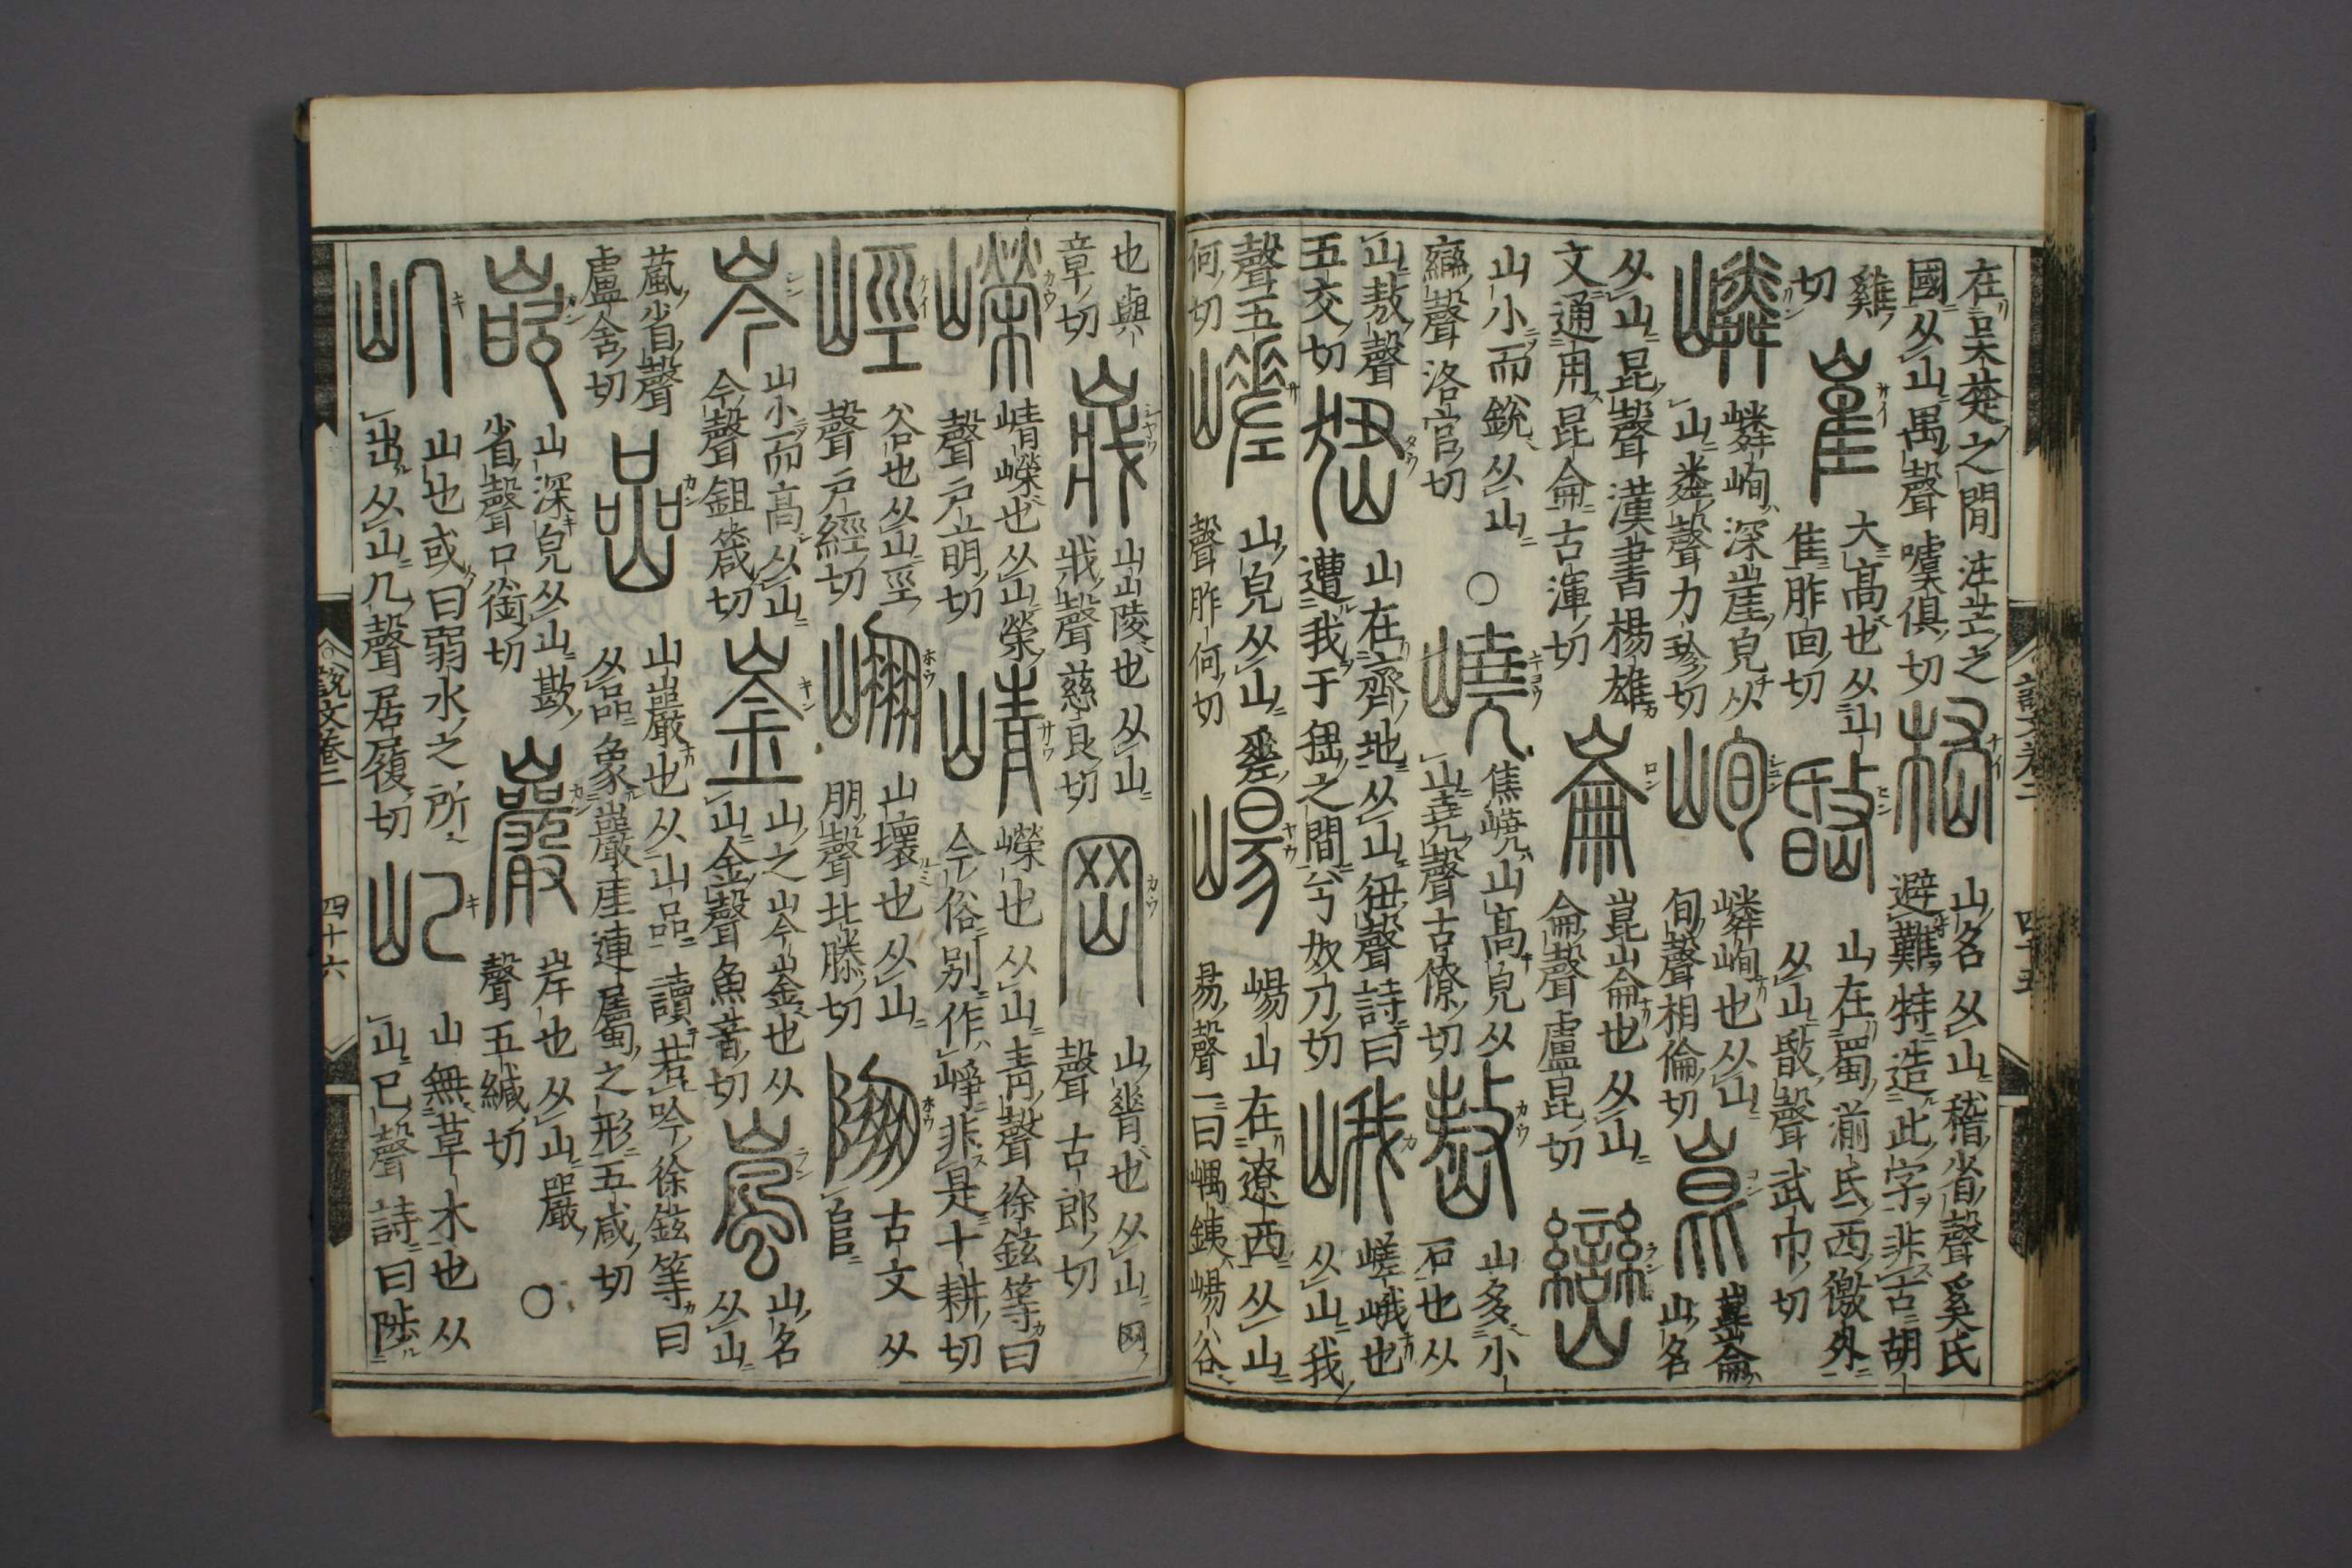 在吴楚之間汪芒之
國从山禺聲噳俱切
嵇
山名从山稽省聲奚氏
避難特造此字非古胡
雞
切
崔
大高也从山
隹胙回切
山在蜀湔氐西徼外
从山敃聲武巾切
嶙
嶙峋深崖皃从
山粦聲力珍切
峋
嶙峋也从山
旬聲相倫切
崑
崑崙
山名
从山昆聲漢書楊雄
文通用昆侖古渾切
崙
崑崙也从山
侖聲盧昆切
巒
山小而銳从山
䜌聲洛官切
○
嶢
焦嶢山高皃从
山堯聲古僚切
嶅
山多小
石也从
山敖聲
五交切
峱
山在齊地从山狃聲詩曰
遭我于峱之間兮奴刀切
峨
嵯峨也
从山我
聲五
何切
嵯
山皃从山
聲昨何切
崵
崵山在遼西从山
昜聲一曰嵎銕崵谷
也與
章切
山陵也从山
戕聲慈良切
岡
山脊也从山网
聲古郎切
嶸
崝嶸也从山榮
聲戶明切
崝
嶸也从山青聲徐鉉等曰
今俗別作崢非是士耕切
巠
谷也从山巠
聲戶經切
崩
山壞也从山
朋聲北滕切
古文从
𨸏
岑
山小而高从山
今聲鉏箴切
崟
山之岑崟也从
山金聲魚音切
嵐
山名
从山
葻省聲
盧含切
嵒
山巖也从山品讀若吟徐鉉等曰
从品象巖厓連屬之形五咸切
嵌
山深皃从山歁
省聲口銜切
巖
岸也从山嚴
聲五緘切
○
屼
山也或曰弱水之所
出从山几聲居履切
屺
山無草木也从
山已聲詩曰陟
說文卷二
四十五
說文卷二
四十六